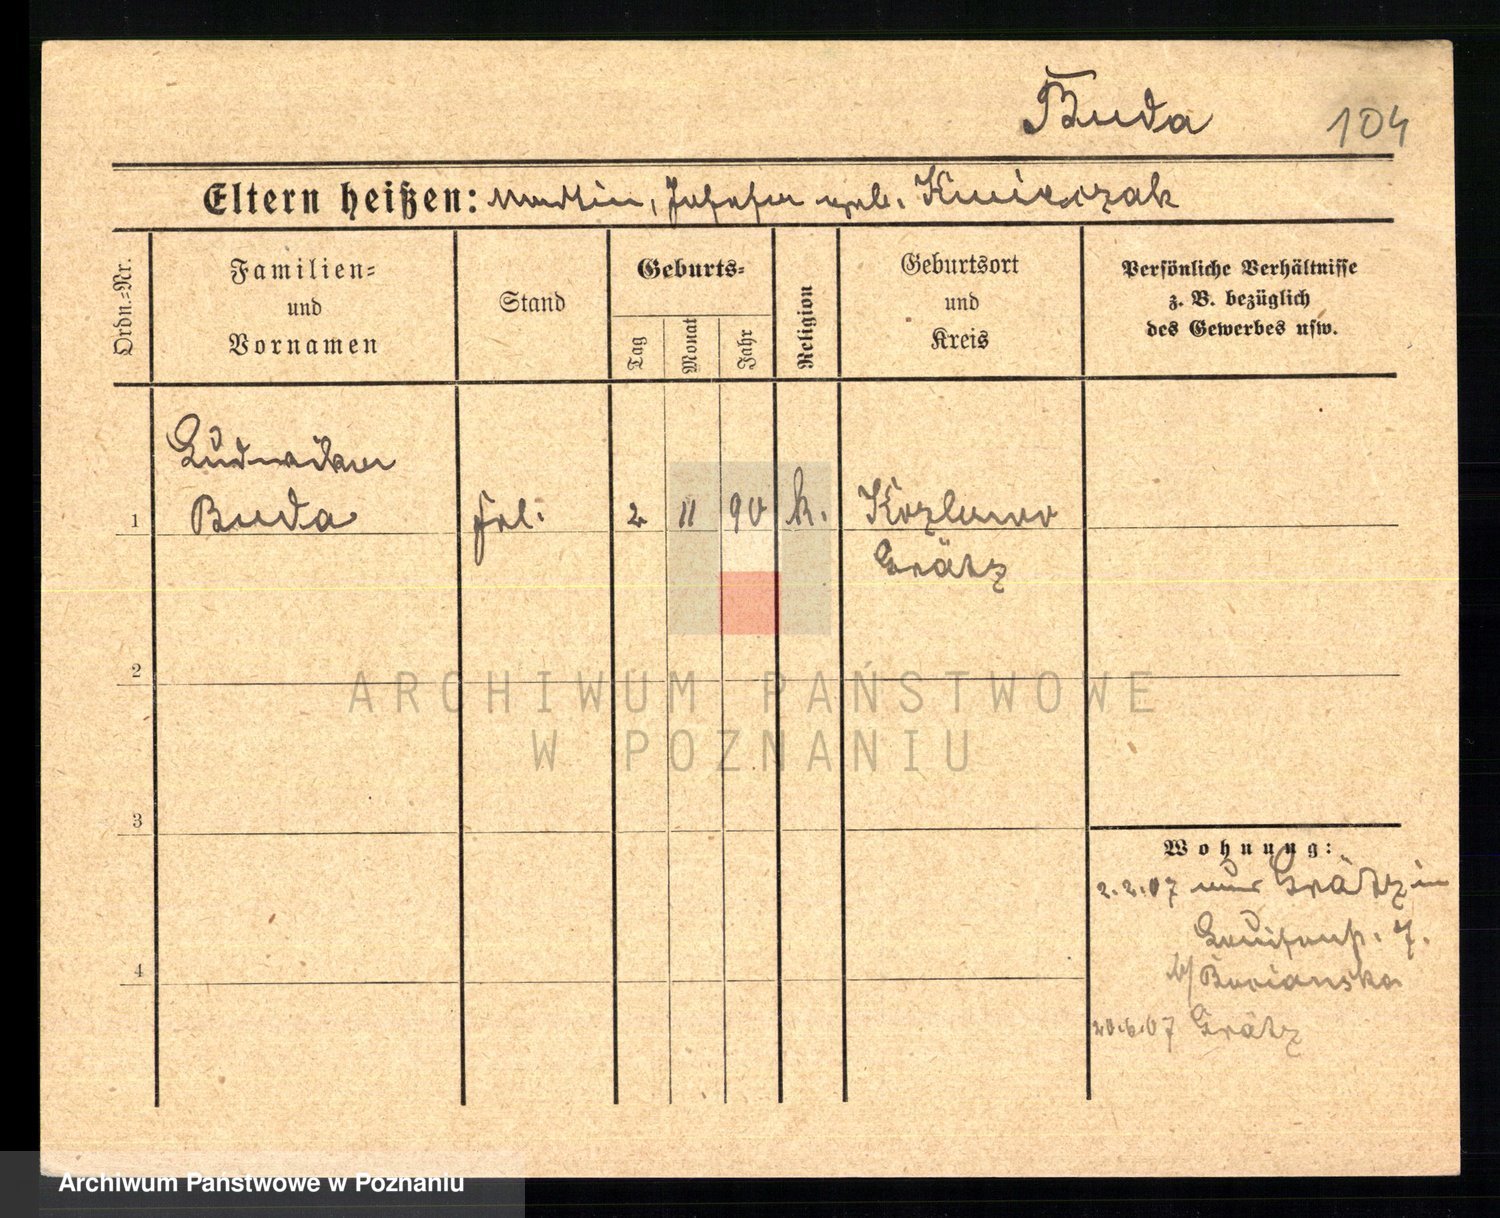 Buda
104
Eltern heißen: Martin, Josefa geb. Kwieczak
Ordn.-Nr.
Familien-
und
Vornamen
Stand
Geburts-
Tag
Monat
Jahr
Religion
Geburtsort
und
Kreis
Persönliche Verhältnisse
z. B. bezüglich
des Gewerbes usw.
Ludwika
1 Buda Frl. 2 11 90 k. Kozlowo
Grätz
2
3
4
Wohnung:
2.2.07 von Grätz in
7.
b/ Bocianska
20.6.07 Grätz
ARCHIWUM PAŃSTWOWE
W POZNANIU
Archiwum Państwowe w Poznaniu